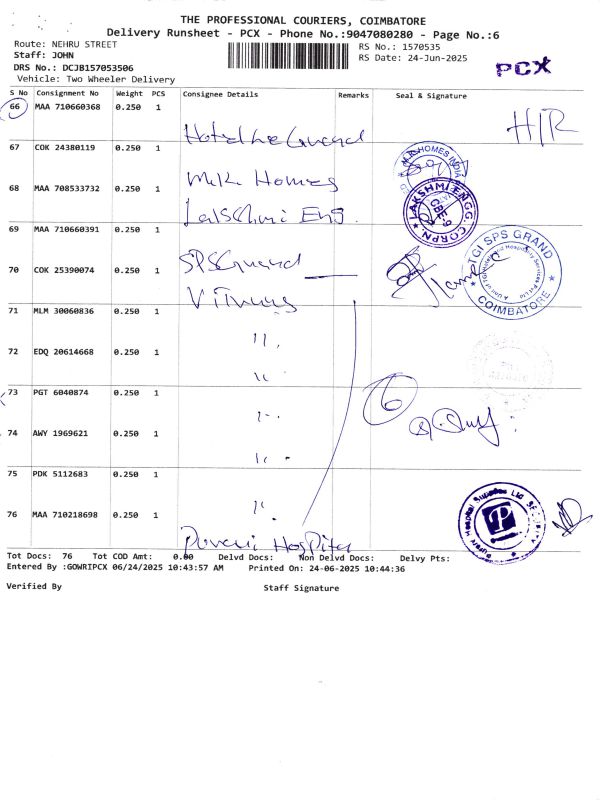 THE PROFESSIONAL COURIERS, COIMBATORE
Delivery Runsheet - PCX - Phone No.:9047080280 - Page No.:6
Route: NEHRU STREET
RS No.: 1570535
Staff: JOHN
RS Date: 24-Jun-2025
DRS No.: DCJB157053506
PCX
Vehicle: Two Wheeler Delivery
S No Consignment No Weight PCS Consignee Details Remarks Seal & Signature
66 MAA 710660368 0.250 1
Hotel Le Guard H/R
67 COK 24380119 0.250 1
M.K. Homes
M.R HOMES INDIA
68 MAA 708533732 0.250 1
Lakshmi Eng.
LAKSHMI ENGG. CORPN. CBE-9
69 MAA 710660391 0.250 1
SPS Guard
TGI SPS GRAND
COIMBATORE
70 COK 25390074 0.250 1
71 MLM 30060836 0.250 1
"
72 EDQ 20614668 0.250 1
"
73 PGT 6040874 0.250 1
"
6
74 AWY 1969621 0.250 1
"
75 PDK 5112683 0.250 1
"
76 MAA 710218698 0.250 1
Hospital
Hospital Supplies Ltd
P
Tot Docs: 76 Tot COD Amt: 0.00 Delvd Docs: Non Delvd Docs: Delvy Pts:
Entered By :GOWRIPCX 06/24/2025 10:43:57 AM Printed On: 24-06-2025 10:44:36
Verified By Staff Signature